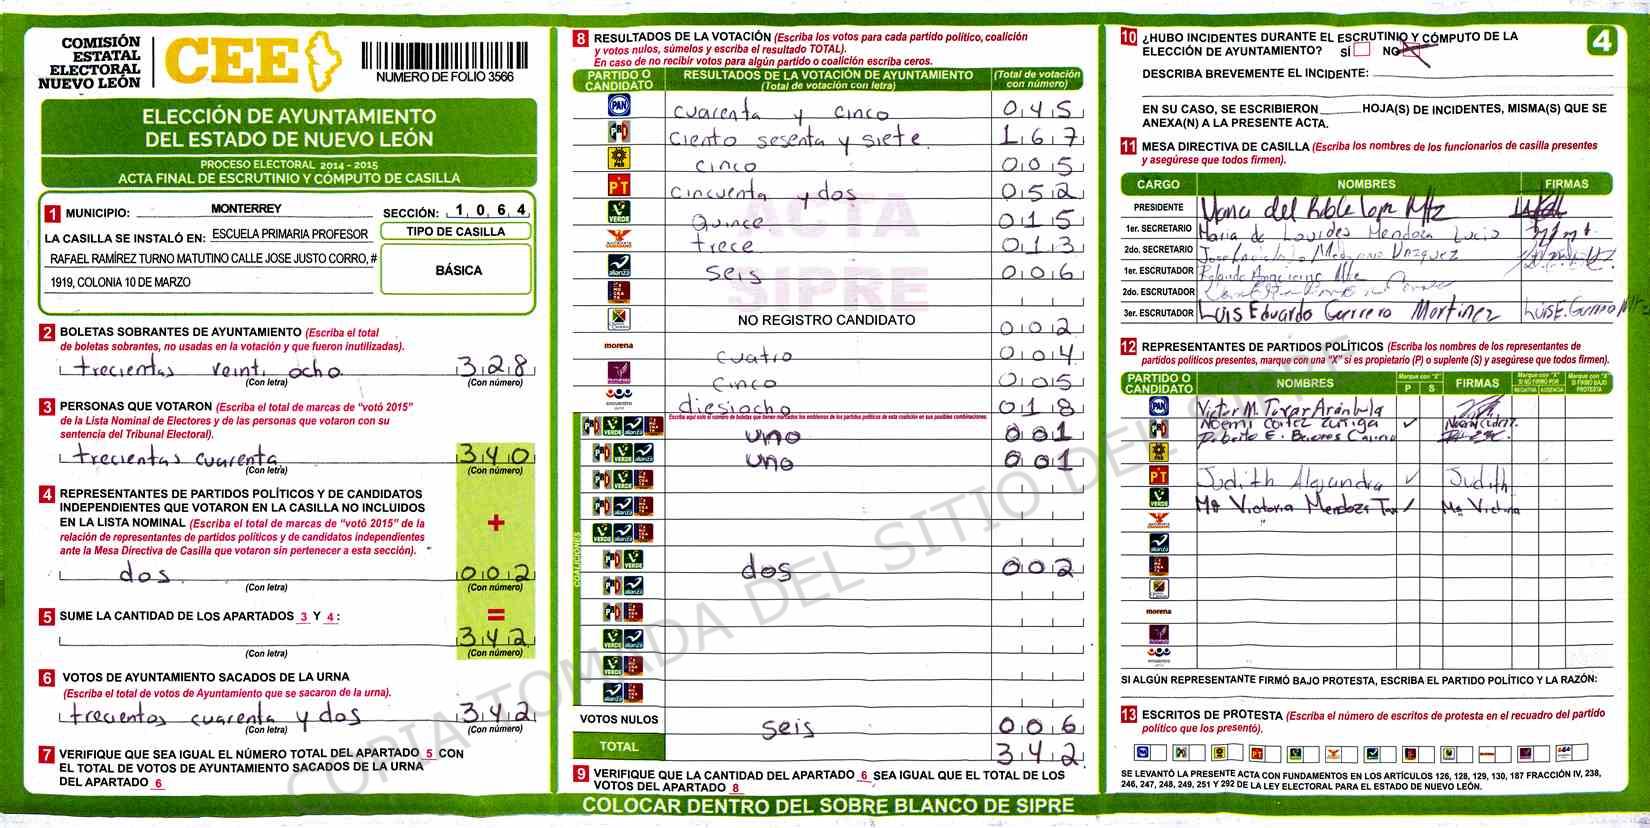 COMISIÓN
ESTATAL
ELECTORAL
NUEVO LEÓN
CEE
NUMERO DE FOLIO 3566
ELECCIÓN DE AYUNTAMIENTO
DEL ESTADO DE NUEVO LEÓN
PROCESO ELECTORAL 2014 - 2015
ACTA FINAL DE ESCRUTINIO Y CÓMPUTO DE CASILLA
1 MUNICIPIO: MONTERREY SECCIÓN: 1 0 6 4
LA CASILLA SE INSTALÓ EN: ESCUELA PRIMARIA PROFESOR
RAFAEL RAMÍREZ TURNO MATUTINO CALLE JOSE JUSTO CORRO, #
1919, COLONIA 10 DE MARZO
TIPO DE CASILLA
BÁSICA
2 BOLETAS SOBRANTES DE AYUNTAMIENTO (Escriba el total
de boletas sobrantes, no usadas en la votación y que fueron inutilizadas).
trecientas veinti ocho 3 2 8
(Con letra) (Con número)
3 PERSONAS QUE VOTARON (Escriba el total de marcas de "votó 2015"
de la Lista Nominal de Electores y de las personas que votaron con su
sentencia del Tribunal Electoral).
trecientas cuarenta 3 4 0
(Con letra) (Con número)
4 REPRESENTANTES DE PARTIDOS POLÍTICOS Y DE CANDIDATOS
INDEPENDIENTES QUE VOTARON EN LA CASILLA NO INCLUIDOS
EN LA LISTA NOMINAL (Escriba el total de marcas de "votó 2015" de la
relación de representantes de partidos políticos y de candidatos independientes
ante la Mesa Directiva de Casilla que votaron sin pertenecer a esta sección).
+
dos 0 0 2
(Con letra) (Con número)
5 SUME LA CANTIDAD DE LOS APARTADOS 3 Y 4:
=
3 4 2
(Con letra) (Con número)
6 VOTOS DE AYUNTAMIENTO SACADOS DE LA URNA
(Escriba el total de votos de Ayuntamiento que se sacaron de la urna).
trecientos cuarenta y dos 3 4 2
(Con letra) (Con número)
7 VERIFIQUE QUE SEA IGUAL EL NÚMERO TOTAL DEL APARTADO 5 CON
EL TOTAL DE VOTOS DE AYUNTAMIENTO SACADOS DE LA URNA
DEL APARTADO 6
8 RESULTADOS DE LA VOTACIÓN (Escriba los votos para cada partido político, coalición
y votos nulos, súmelos y escriba el resultado TOTAL).
En caso de no recibir votos para algún partido o coalición escriba ceros.
PARTIDO O CANDIDATO RESULTADOS DE LA VOTACIÓN DE AYUNTAMIENTO (Total de votación con letra) (Total de votación con número)
PAN cuarenta y cinco 0 4 5
PRD ciento sesenta y siete 1 6 7
cinco 0 0 5
PT cincuenta y dos 0 5 2
VERDE Quince 0 1 5
trece 0 1 3
alianza seis 0 0 6
NO REGISTRO CANDIDATO
0 0 2
morena cuatro 0 0 4
cinco 0 0 5
encuentro diesiocho 0 1 8
Escriba aquí solo el número de boletas que tienen marcados los emblemas de los partidos políticos de esta coalición en sus posibles combinaciones.
COALICIONES
uno 0 0 1
uno 0 0 1
dos 0 0 2
VOTOS NULOS seis 0 0 6
TOTAL 3 4 2
9 VERIFIQUE QUE LA CANTIDAD DEL APARTADO 6 SEA IGUAL QUE EL TOTAL DE LOS
VOTOS DEL APARTADO 8
ACTA
SIPRE
COLOCAR DENTRO DEL SOBRE BLANCO DE SIPRE
10 ¿HUBO INCIDENTES DURANTE EL ESCRUTINIO Y CÓMPUTO DE LA
ELECCIÓN DE AYUNTAMIENTO? SÍ NO X
4
DESCRIBA BREVEMENTE EL INCIDENTE:
EN SU CASO, SE ESCRIBIERON HOJA(S) DE INCIDENTES, MISMA(S) QUE SE
ANEXA(N) A LA PRESENTE ACTA.
11 MESA DIRECTIVA DE CASILLA (Escriba los nombres de los funcionarios de casilla presentes
y asegúrese que todos firmen).
CARGO NOMBRES FIRMAS
PRESIDENTE Maria del Roble
1er. SECRETARIO Maria de Lourdes Mendoza Lucio
2do. SECRETARIO Vazquez
1er. ESCRUTADOR Rolando
2do. ESCRUTADOR
3er. ESCRUTADOR Luis Eduardo Guerrero Martinez
12 REPRESENTANTES DE PARTIDOS POLÍTICOS (Escriba los nombres de los representantes de
partidos políticos presentes, marque con una "X" si es propietario (P) o suplente (S) y asegúrese que todos firmen).
PARTIDO O CANDIDATO NOMBRES Marque con "X" P S FIRMAS Marque con "X" SI NO FIRMÓ POR NEGATIVA AUSENCIA Marque con "X" SI FIRMÓ BAJO PROTESTA
PAN Victor M. Tovar Arámbula
Noemi Cortez Zuñiga
Roberto E.
PT Judith Alejandra Judith
VERDE Mª Victoria Mendoza Mª Victoria
alianza
morena
encuentro
SI ALGÚN REPRESENTANTE FIRMÓ BAJO PROTESTA, ESCRIBA EL PARTIDO POLÍTICO Y LA RAZÓN:
13 ESCRITOS DE PROTESTA (Escriba el número de escritos de protesta en el recuadro del partido
político que los presentó).
SE LEVANTÓ LA PRESENTE ACTA CON FUNDAMENTOS EN LOS ARTÍCULOS 126, 128, 129, 130, 187 FRACCIÓN IV, 238,
246, 247, 248, 249, 251 Y 292 DE LA LEY ELECTORAL PARA EL ESTADO DE NUEVO LEÓN.
COPIA TOMADA DEL SITIO DEL SIPRE